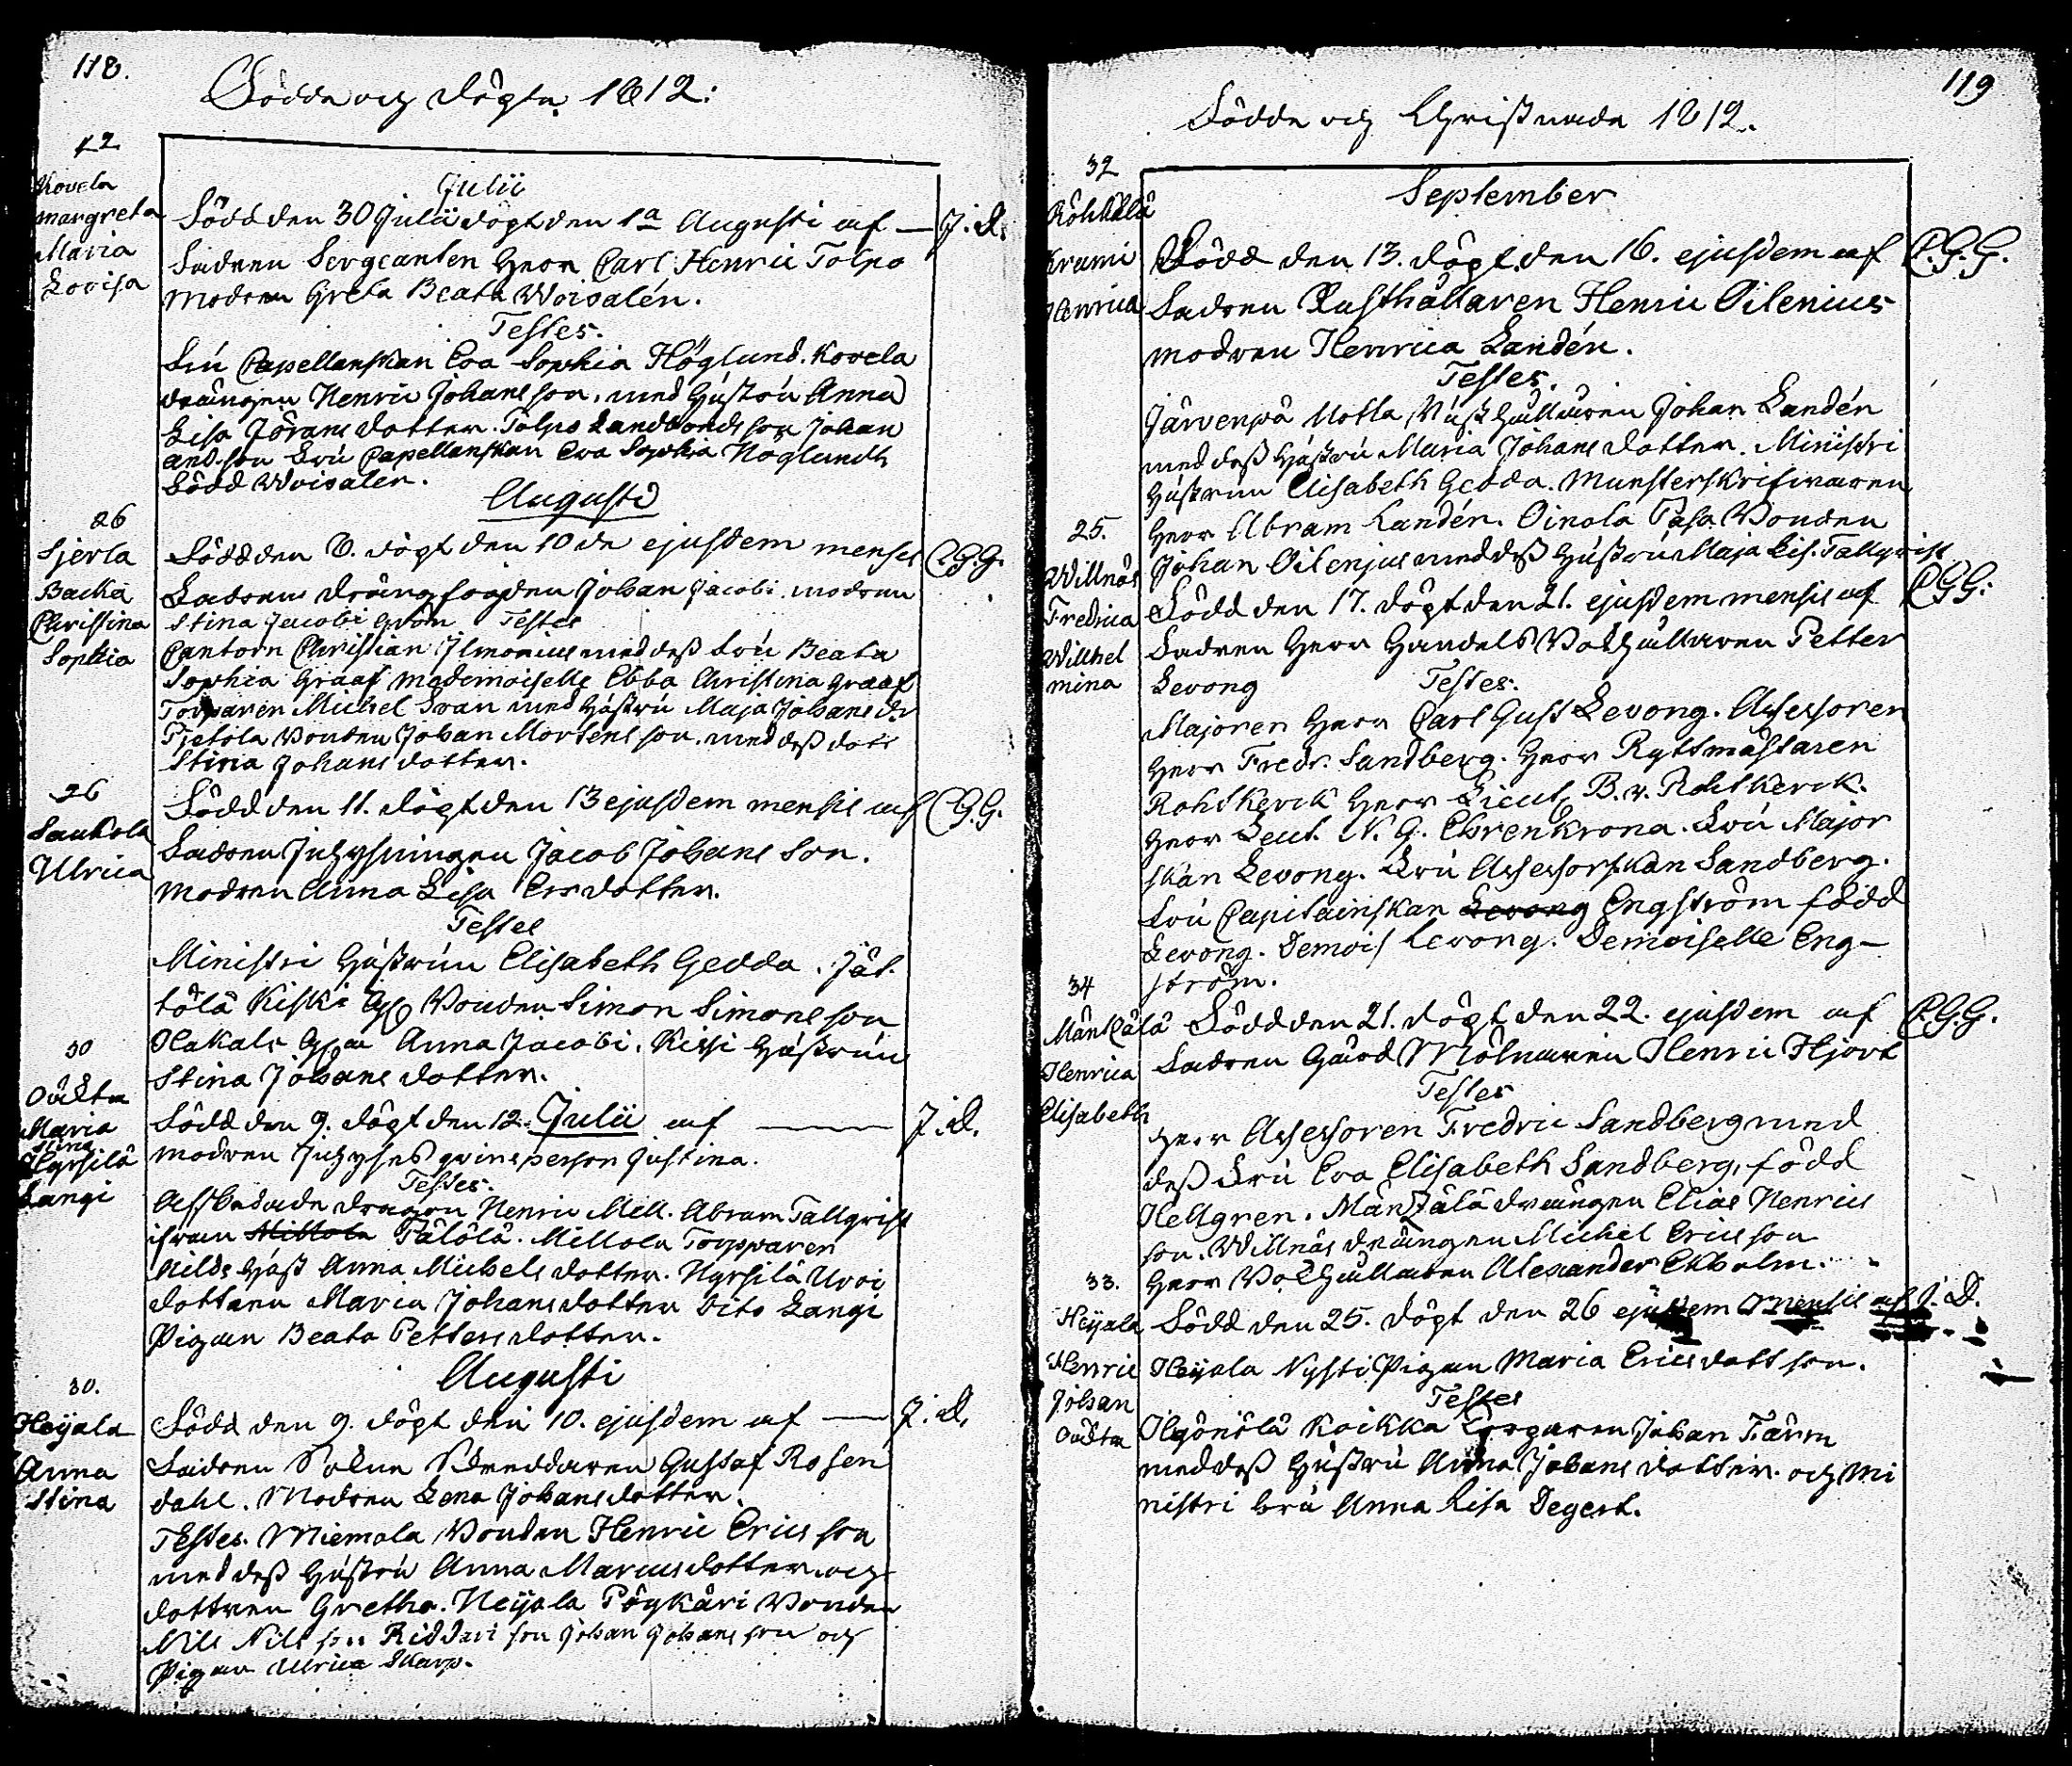 118.
Födde och Döpta 1812:
42
Kovela
Margreta
Maria
Lovisa
Julii
Född den 30 Julii döpt den 1a Augusti af — J. D.
Fadren Sergeanten Herr Carl Henric Tolpo
Modren Greta Beata Woivalén.
Testes.
Fru Capellanskan Eva Sophia Höglund. Kovela
drängen Henric Johansson, med Hustru Anna
Lisa Jöransdotter. Tolpo Landbonds son Johan
And.son Fru Capellanskan Eva Sophia Höglundh
Född Woivalen.
Augusti
26
Sjerla
Backa
Christina
Sophia
Född den 8. döpt den 10 de ejusdem menses C.G.G.
Fadren Drängfogden Johan Jacobi modren
Stina Jacobi Testes
Cantorn Christian Ilmonius med dess Fru Beata
Sophia Graaf Mademoiselle Ebba Christina Graaf
Torparen Michel Svan med Hustru Maja Johans dr
Pietola Bonden Johan Mortensson. med dess dotr
Stina Johansdotter.
26
Saukola
Ulrica
Född den 11. döpt den 13 ejusdem mensis af C.G.G.
Fadren Inhysingen Jacob Johansson.
Modren Anna Lisa Ersdotter.
Testes
Ministri Hustrun Elisabeth Gedda. Jät-
tölä Kiski Bonden Simon Simonsson
Hakala Anna Jacobi. Kissi Hustrun
Stina Johansdotter.
30
Oäckta
Maria
Stina
Hyrsilä
Langi
Född den 9. döpt den 12. Julii af — J. D.
Modren Inhyses qvinsperson Justina.
Testes.
Afskedade dragon Henric Mell. Abram Tallqvist
ifrån Millola Tälölä. Millola Torpparen
Nilds Hust Anna Michelsdotter. Hyrsilä Uroi
dottren Maria Johansdotter dito Langi
Pigan Beata Pettersdotter.
Augusti
30.
Heijala
Anna
Stina
Född den 9. döpt den 10. ejusdem af — J. D.
Fadren Sockne Skreddaren Gustaf Rosen
dahl. Modren Lena Johansdotter.
Testes. Miemola Bonden Henric Ericsson
med dess Hustru Anna Marcusdotter och
dottren Gretha. Heijala Pöykäri Bonden
Nils Nilsson Riddari son Johan Johansson och
Pigan Ulrica Skarp.
119
Födde och Christnade 1812.
32
Röhkälä
Krami
Henrica
September
Född den 13. döpt den 16. ejusdem af C.G.G.
Fadren Rusthållaren Henric Oilenius
modren Henrica Landén.
Testes.
Järvenpä Notla Rusthållaren Johan Landén
med dess Hustru Maria Johansdotter. Ministri
Hustrun Elisabeth Gedda. Munsterskrifvaren
Herr Abram Landén. Oinola Pasa Bonden
Johan Oilenjus med dess Hustru Maja Lis. Tallqvist
25.
Willnäs
Fredrica
Wilhel
mina
Född den 17. döpt den 21. ejusdem mensis af C.G.G:
Fadren Herr Handels Bokhållaren Petter
Levong Testes.
Majoren Herr Carl Gust Levong. Assessoren
Herr Fredr. Sandberg. Herr Ryttmästaren
Rohtkerck Herr Lieut. B. v. Rohtkerck.
Herr Leut. N. G. Ehrenkrona. Fru Major
skan Levong. Fru Assessorskan Sandberg.
Fru Capitainskan Levong Engström född
Levong. Demois Levong. Demoiselle Eng-
ström.
34
Mänkälä
Henrica
Elisabeth
Född den 21. döpt den 22. ejusdem af C.G.G.
Fadren Gård Mölnaren Henric Hjort
Testes
Herr Assessoren Fredric Sandberg med
dess Fru Eva Elisabeth Sandberg, född
Hellgren. Mänkälä drängen Elias Henrics
son. Willnäs drängen Michel Ericsson
Herr Bokhållaren Alexander Ekholm.
33.
Heijala
Henric
Johan
Oäckta
Född den 25. döpt den 26 ejusdem mensis af J. D.
Heijala Nysti Pigan Maria Ericsdott son.
Testes
Hyönölä Koikka Torparen Johan Färm
med dess Hustru Anna Johansdotter. och Mi
nistri fru Anna Lisa Degert.